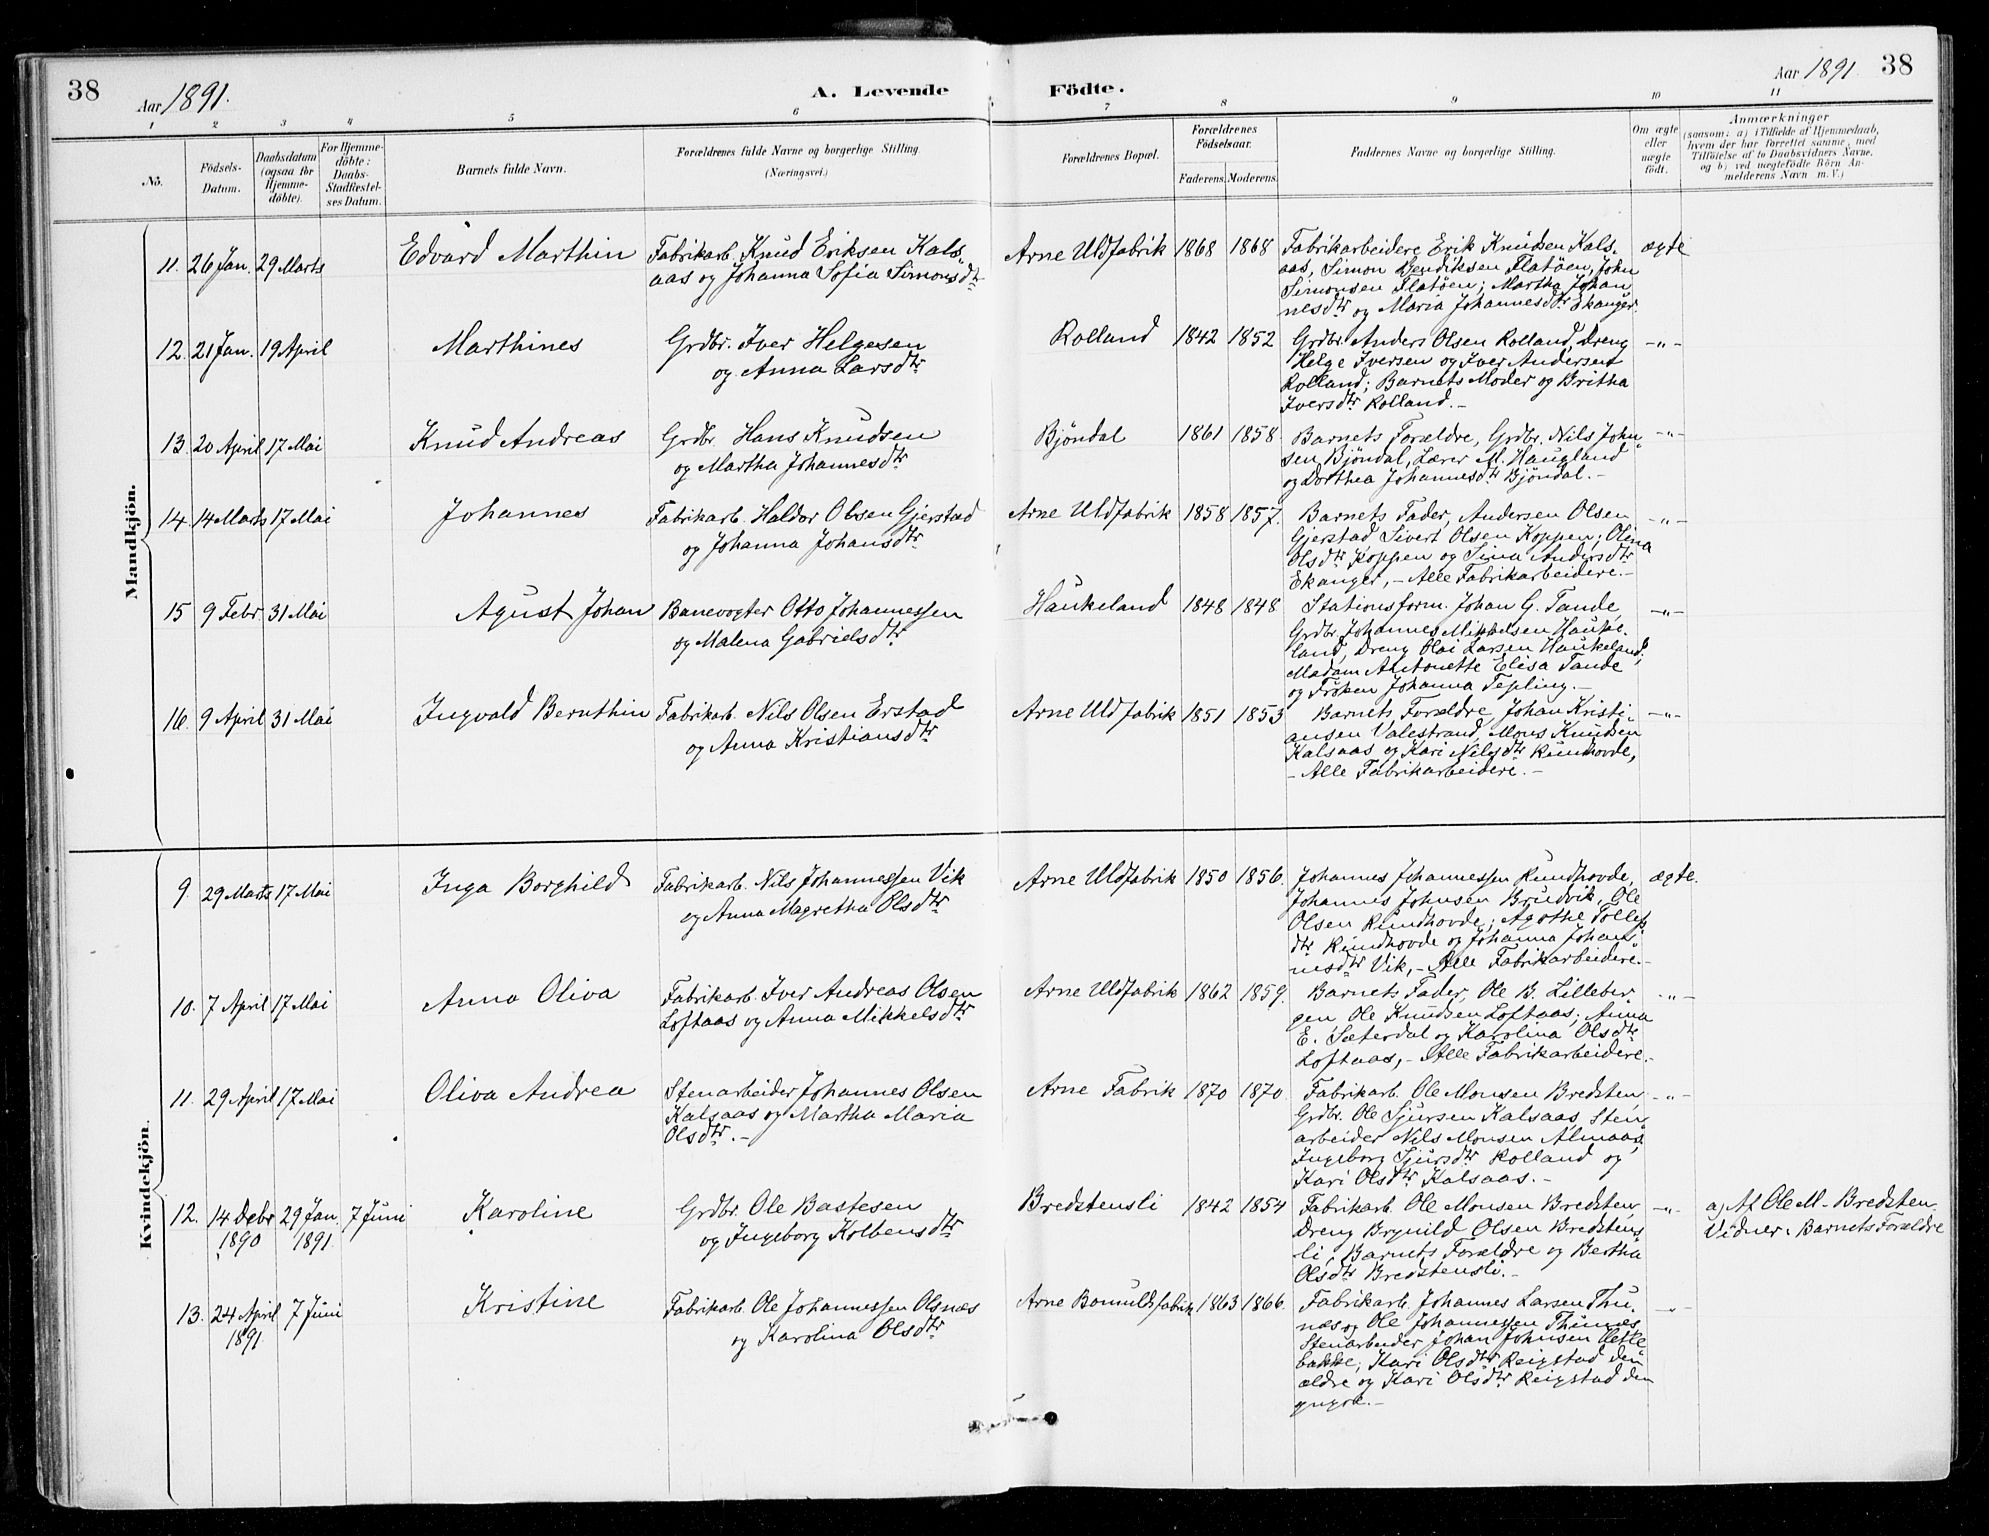 38
Aar 1891.
A. Levende Födte.
Aar 1891.
38
1 2 3 4 5 6 7 8 9 10 11
No.
Födsels-Datum.
Daabsdatum (ogsaa for Hjemmedöbte).
For Hjemmedöbte: Daabs-Stadfæstelses Datum.
Barnets fulde Navn.
Forældrenes fulde Navne og borgerlige Stilling.
(Næringsvei.)
Forældrenes Bopæl.
Forældrenes Födselsaar.
Faderens. Moderens.
Faddernes Navne og borgerlige Stilling.
Om ægte eller uægte födt.
Anmærkninger
(saasom: a) i Tilfælde af Hjemmedaab, hvem der har forrettet samme, med Tilföielse af to Daabsvidners Navne, og b) ved uægtefödte Börn Anmelderens Navn m. V.)
Mandkjön.
11. 26 Jan. 29 Marts Edvard Marthin Fabrikarb. Knud Eriksen Kals- Arne Uldfabrik 1868 1868 Fabrikarbeidere Erik Knudsen Kals- ægte
aas og Johanna Sofia Simonsdtr aas, Simon Hendiksen Flatöen, John
Simonsen Flatöen; Martha Johan
nesdtr og Maria Johannesdtr Ekanger.
12. 21 Jan. 19 April Marthines Grdbr. Iver Helgesen Rolland 1842 1852 Grdbr. Anders Olsen Rolland, Dreng -„-
og Anna Larsdtr Helge Iversen og Iver Andersen
Rolland; Barnets Moder og Britha
Iversdtr Rolland.-
13. 20 April 17 Mai Knud Andreas Grdbr. Hans Knudsen Bjöndal 1861 1858. Barnets Forældre, Grdbr. Nils John- -„-
og Martha Johannesdtr sen Bjöndal, Lærer M. Haugland
og Dorthea Johannesdtr Bjöndal.-
14. 14 Marts 17 Mai Johannes Fabrikarb. Haldor Olsen Gjerstad Arne Uldfabrik 1858 1857. Barnets Fader, Andersen Olsen -„-
og Johanna Johansdtr Gjerstad Sivert Olsen Koppen; Olina
Olsdtr Koppen og Sina Andersdtr
Ekanger,- Alle Fabrikarbeidere.-
15 9 Febr. 31 Mai Agust Johan Banevogter Otto Johannessen Haukeland 1848 1848 Stationsform. Johan G. Tande, -„-
og Malena Gabrielsdtr Grdbr Johannes Mikkelsen Hauke-
land, Dreng Olai Larsen Haukeland;
Madam Antonette Elisa Tande
og Fröken Johanna Tepling.-
16. 9 April 31 Mai Ingvald Bernthin Fabrikarb. Nils Olsen Erstad Arne Uldfabrik 1851 1853 Barnets Forældre, Johan Kristi- -„-
og Anna Kristiansdtr ansen Valestrand, Mons Knudsen
Kalsaas og Kari Nilsdtr Rundhovde,
- Alle Fabrikarbeidere.-
Kvindekjön.
9. 29 Marts 17 Mai Inga Borghild Fabrikarb. Nils Johannessen Vik Arne Uldfabrik 1850 1856. Johannes Johannessen Rundhovde, ægte.
og Anna Magretha Olsdtr Johannes Johnsen Brudvik, Ole
Olsen Rundhovde; Agothe Tollefs
dtr Rundhovde og Johanna Johan-
nesdtr Vik,- Alle Fabrikarbeidere.-
10. 7 April 17 Mai Anna Oliva Fabrikarb. Iver Andreas Olsen Arne Uldfabrik 1862 1859. Barnets Fader, Ole B. Lilleber- -„-
Loftaas og Anna Mikkelsdtr gen Ole Knudsen Loftaas; Anna
E. Sæterdal og Karolina Olsdtr
Loftaas,- Alle Fabrikarbeidere.-
11. 29 April 17 Mai Oliva Andrea Stenarbeider Johannes Olsen Arne Fabrik 1870 1870 Fabrikarb. Ole Monsen Bredsten, -„-
Kalsaas og Martha Maria Grdbr. Ole Sjursen Kalsaas, Sten-
Olsdtr.- arbeider Nils Monsen Almaas,
Ingeborg Sjursdtr Rolland og
Kari Olsdtr Kalsaas.-
12. 14 Debr 29 Jan. 7 Juni Karoline Grdbr. Ole Bastesen Bredstensli 1842 1854 Fabrikarb. Ole Monsen Bredsten, -„- a, Af Ole M. Bredsten.
1890 1891. og Ingeborg Kolbensdtr Dreng Brynild Olsen Bredstens- Vidner: Barnets Forældre
li, Barnets Forældre og Bertha
Olsdtr Bredstensli.-
13. 24 April 7 Juni Kristine Fabrikarb. Ole Johannessen Olsnæs Arne Bomuldsfabrik 1863 1866. Fabrikarb. Johannes Larsen Thu- -„-
1891. og Karolina Olsdtr næs og Ole Johannessen Thunæs
Stenarbeider Johan Johnsen Hetle
bakke; Kari Olsdtr Reigstad den
ældre og Kari Olsdtr Reigstad den
yngre.-